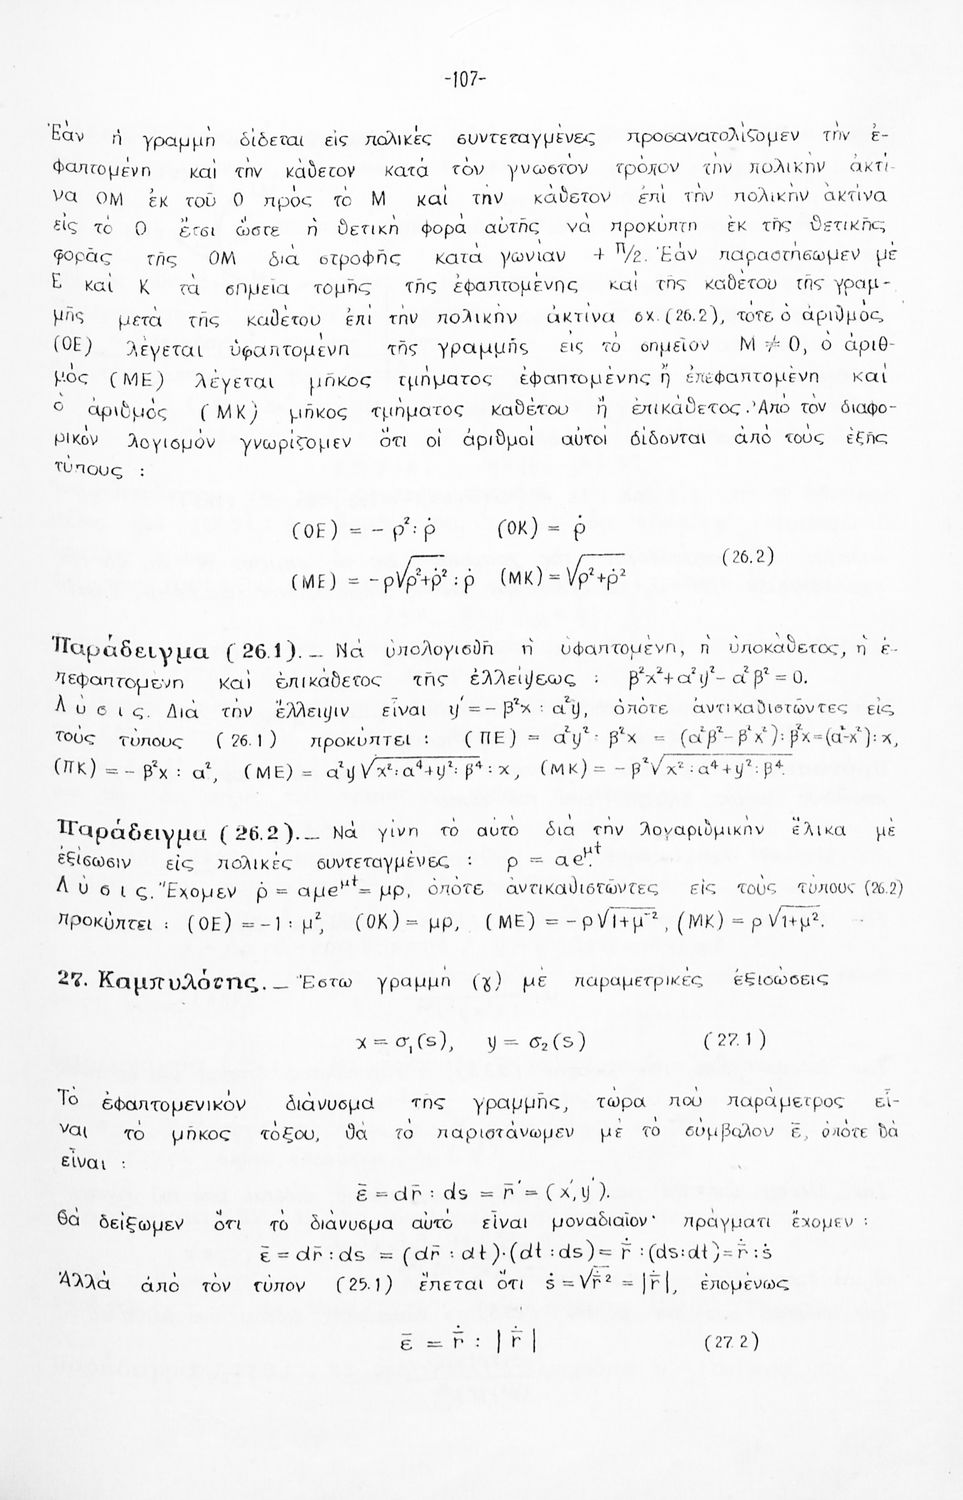 -107-
Ἐάν ἡ γραμμή δίδεται εἰς πολικές συντεταγμένες προσανατολίζομεν τήν ἐ-
φαπτομένη καί τήν κάθετον κατά τόν γνωστόν τρόπον τήν πολικήν ἀκτί-
να ΟΜ ἐκ τοῦ Ο πρός τό Μ καί τήν κάθετον ἐπί τήν πολικήν ἀκτίνα
εἰς τό Ο ἔτσι ὥστε ἡ θετική φορά αὐτῆς νά προκύπτη ἐκ τῆς θετικῆς
φορᾶς τῆς ΟΜ διά στροφῆς κατά γωνίαν + π/2. Ἐάν παραστήσωμεν μέ
Ε καί Κ τά σημεῖα τομῆς τῆς ἐφαπτομένης καί τῆς καθέτου τῆς γραμ-
μῆς μετά τῆς καθέτου ἐπί τήν πολικήν ἀκτίνα σχ.(26.2), τότε ὁ ἀριθμός
(ΟΕ) λέγεται ὑφαπτομένη τῆς γραμμῆς εἰς τό σημεῖον Μ ≠ Ο, ὁ ἀριθ-
μός (ΜΕ) λέγεται μῆκος τμήματος ἐφαπτομένης ἤ ἐπεφαπτομένη καί
ὁ ἀριθμός (ΜΚ) μῆκος τμήματος καθέτου ἤ ἐπικάθετος. Ἀπό τόν διαφο-
ρικόν λογισμόν γνωρίζομεν ὅτι οἱ ἀριθμοί αὐτοί δίδονται ἀπό τούς ἑξῆς
τύπους :
(ΟΕ) = - ρ²: ρ̇ (ΟΚ) = ρ̇
(26.2)
(ΜΕ) = -ρ√ρ²+ρ̇² : ρ̇ (ΜΚ) = √ρ²+ρ̇²
Παράδειγμα (26.1). — Νά ὑπολογισθῆ ἡ ὑφαπτομένη, ἡ ὑποκάθετος, ἡ ἐ-
πεφαπτομένη καί ἐπικάθετος τῆς ἐλλείψεως : β²x²+α²y²-α²β² = 0.
Λύσις. Διά τήν ἔλλειψιν εἶναι y′ = - β²x : α²y, ὁπότε ἀντικαθιστῶντες εἰς
τούς τύπους (26.1) προκύπτει : (ΠΕ) = α²y² : β²x = (α²β²-β²x²): β²x=(α²-x²):x,
(ΠΚ) = - β²x : α², (ΜΕ) = α²y√x²:α⁴+y²:β⁴ : x, (ΜΚ) = - β²√x²:α⁴+y²:β⁴.
Παράδειγμα (26.2). — Νά γίνη τό αὐτό διά τήν λογαριθμικήν ἕλικα μέ
ἐξίσωσιν εἰς πολικές συντεταγμένες : ρ = αe^μt.
Λύσις. Ἔχομεν ρ̇ = αμe^μt = μρ, ὁπότε ἀντικαθιστῶντες εἰς τούς τύπους (26.2)
προκύπτει : (ΟΕ) = -1 : μ², (ΟΚ) = μρ, (ΜΕ) = -ρ√1+μ⁻², (ΜΚ) = ρ√1+μ².
27. Καμπυλότης. — Ἔστω γραμμή (γ) μέ παραμετρικές ἐξισώσεις
x = σ₁(s), y = σ₂(s) (27.1)
Τό ἐφαπτομενικόν διάνυσμα τῆς γραμμῆς, τώρα πού παράμετρος εἶ-
ναι τό μῆκος τόξου, θά τό παριστάνωμεν μέ τό σύμβολον ε̄, ὁπότε θά
εἶναι :
ε̄ = dr̄ : ds = r̄′ = (x′, y′).
Θά δείξωμεν ὅτι τό διάνυσμα αὐτό εἶναι μοναδιαῖον· πράγματι ἔχομεν :
ε̄ = dr̄ : ds = (dr̄ : dt)·(dt : ds) = r̄̇ : (ds:dt) = r̄̇ : ṡ
Ἀλλά ἀπό τόν τύπον (25.1) ἕπεται ὅτι ṡ = √r̄̇² = |r̄̇|, ἑπομένως
ε̄ = r̄̇ : | r̄̇ | (27.2)